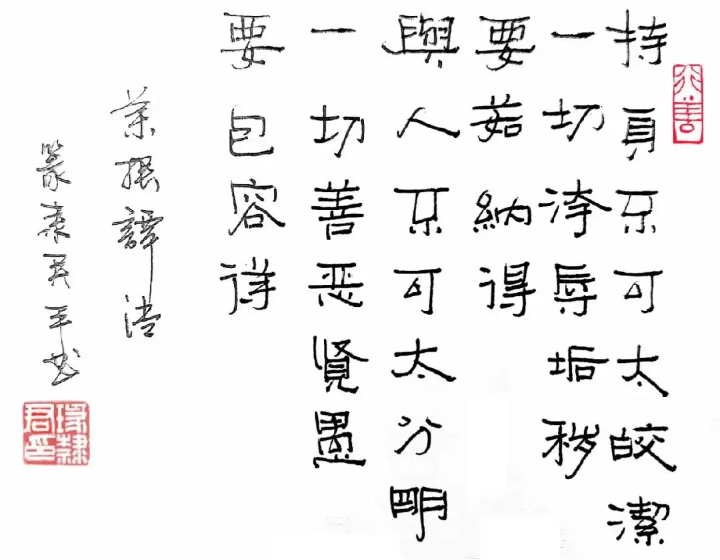 行善
持身不可太皎潔
一切汚辱垢穢
要茹納得
與人不可太分明
一切善恶賢愚
要包容得
菜根譚